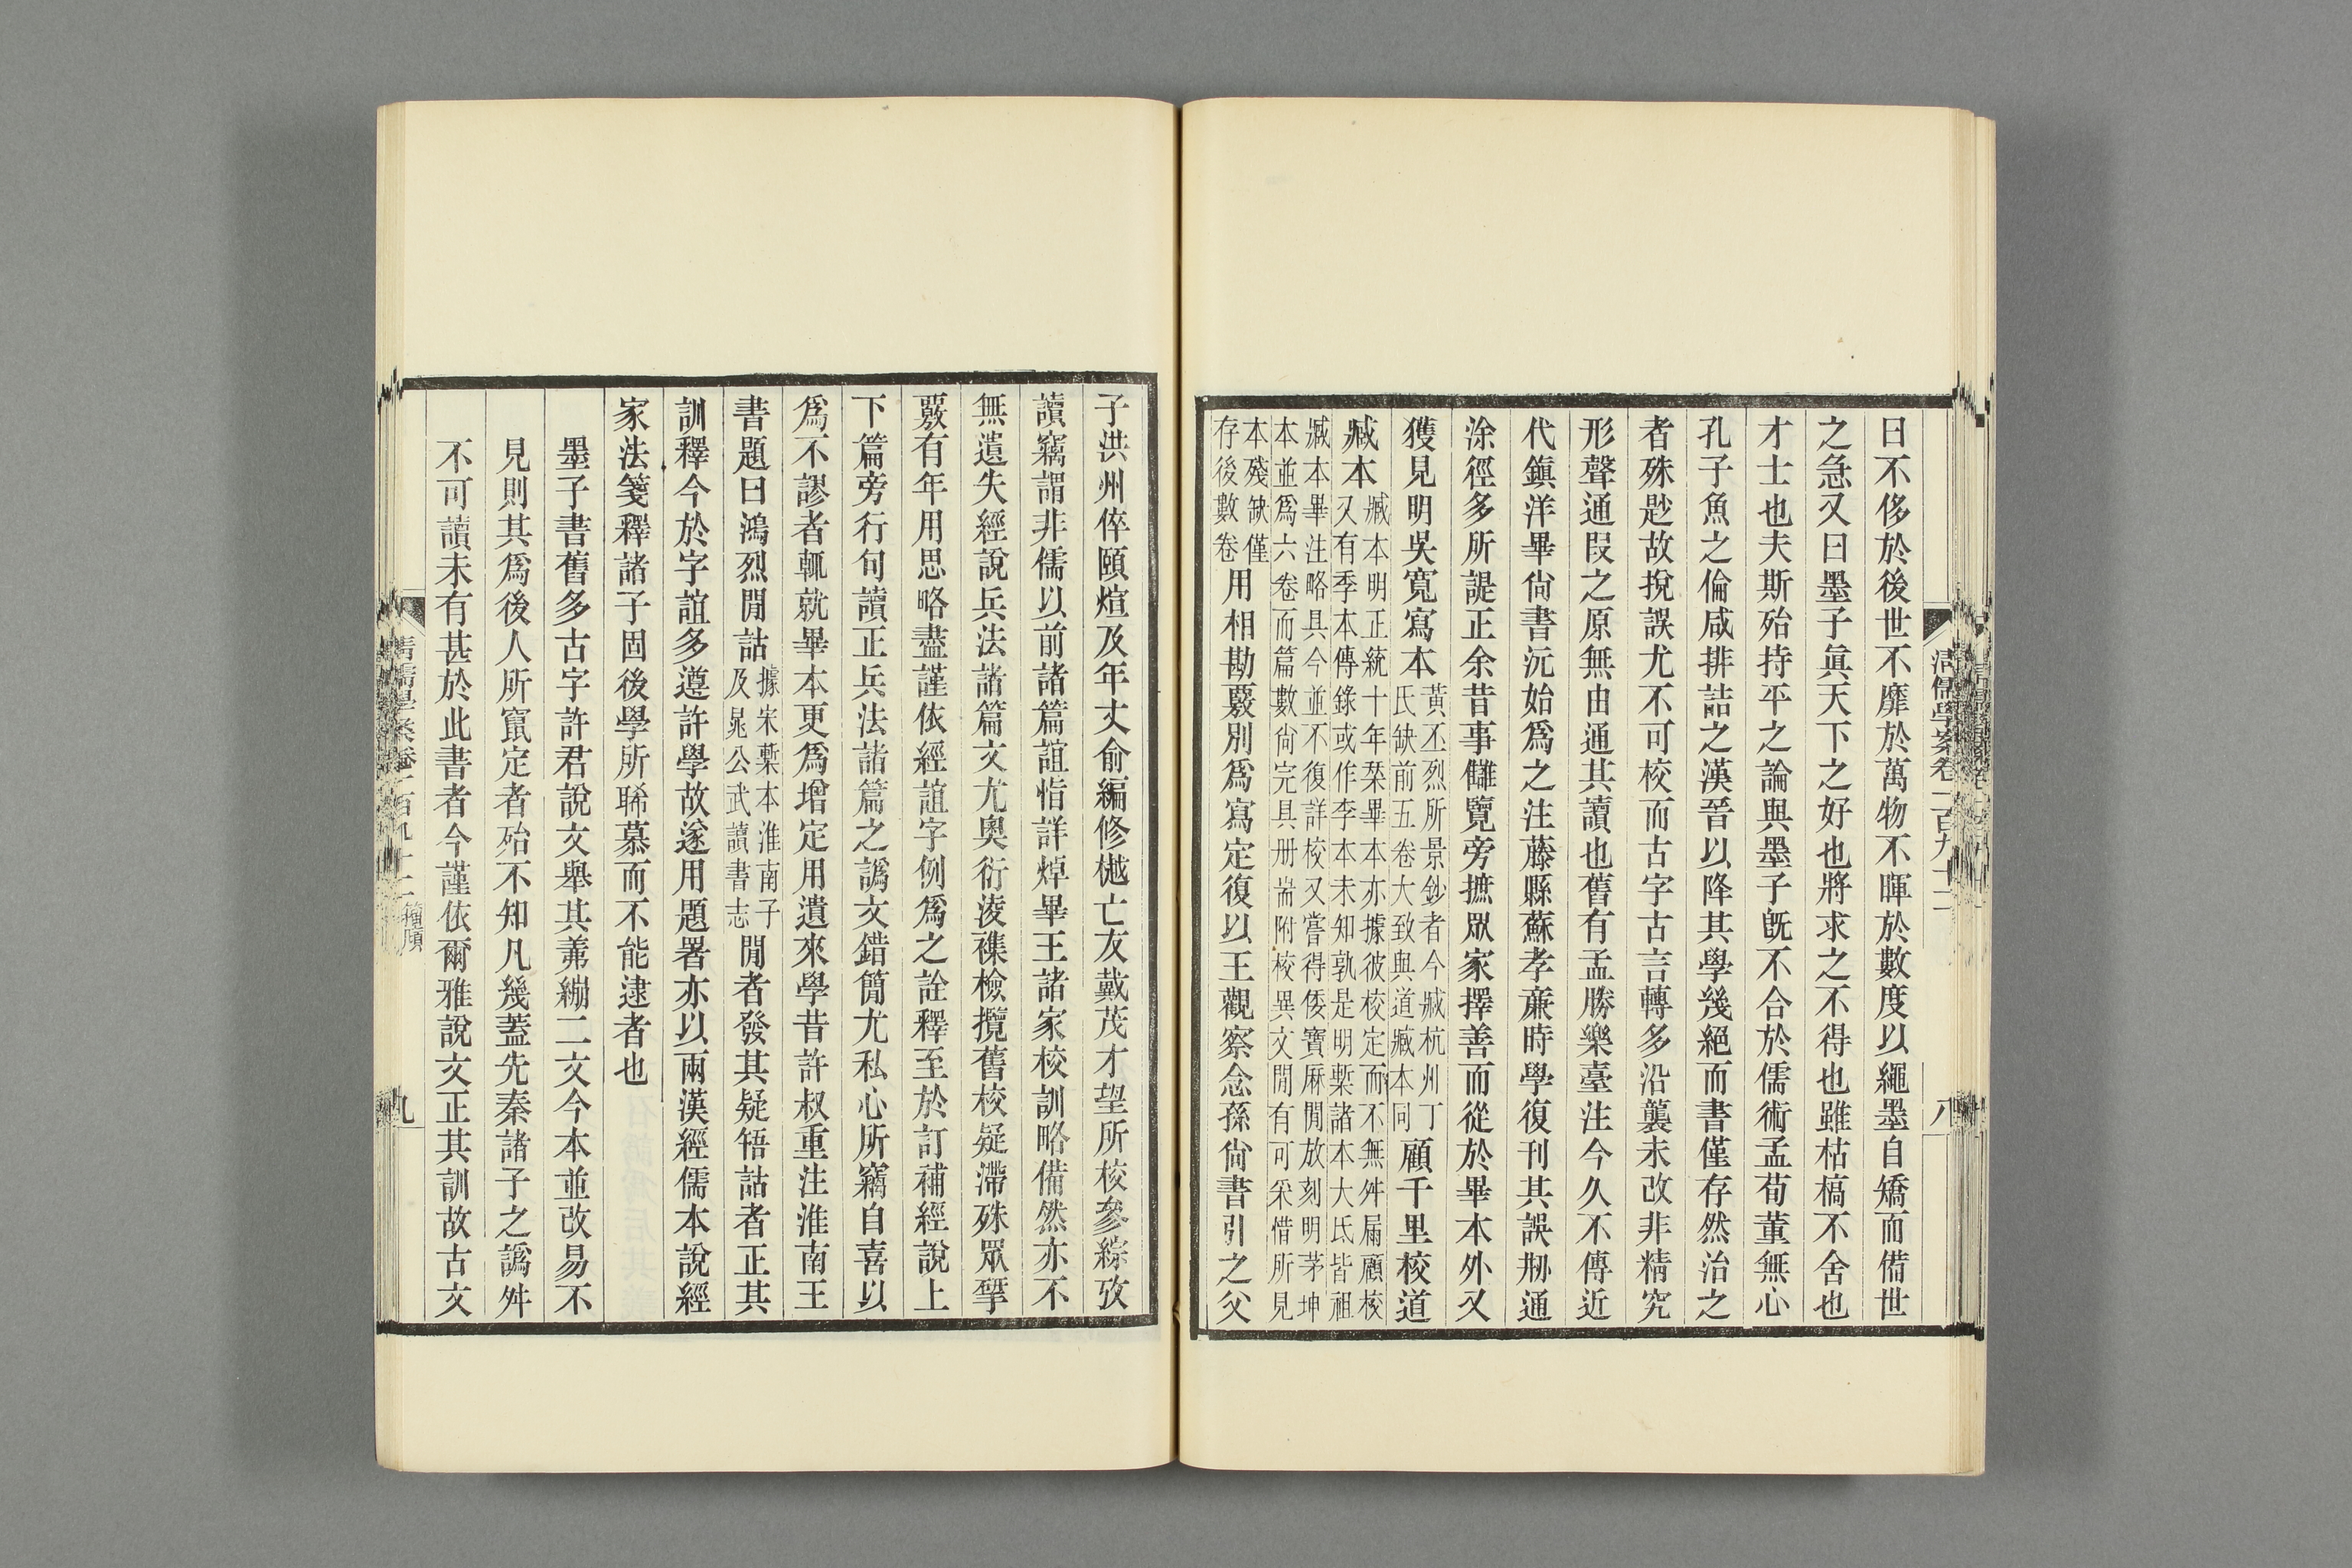 清儒學案卷一百九十二
八
曰不侈於後世不靡於萬物不暉於數度以繩墨自矯而備世
之急又曰墨子眞天下之好也將求之不得也雖枯槁不舍也
才士也夫斯殆持平之論與墨子旣不合於儒術孟荀董無心
孔子魚之倫咸排詰之漢晉以降其學幾絕而書僅存然治之
者殊尟故挩誤尤不可校而古字古言轉多沿襲未改非精究
形聲通叚之原無由通其讀也舊有孟勝樂臺注今久不傳近
代鎭洋畢尙書沅始爲之注藤縣蘇孝廉時學復刊其誤刱通
涂徑多所諟正余昔事讎覽旁摭眾家擇善而從於畢本外又
獲見明吳寬寫本黃丕烈所景鈔者今臧杭州丁氏缺前五卷大致與道臧本同顧千里校道
臧本臧本明正統十年栞畢本亦據彼校定而不無舛屚顧校又有季本傳錄或作李本未知孰是明槧諸本大氐皆祖
臧本畢注略具今並不復詳校又嘗得倭寶厤閒放刻明茅坤本並爲六卷而篇數尙完具册耑附校異文閒有可采惜所見
本殘缺僅存後數卷用相勘覈別爲寫定復以王觀察念孫尙書引之父
子洪州倅頤煊及年丈俞編修樾亡友戴茂才望所校參綜攷
讀竊謂非儒以前諸篇誼恉詳焯畢王諸家校訓略備然亦不
無遺失經說兵法諸篇文尤奧衍淩襍檢攬舊校疑滯殊眾揅
覈有年用思略盡謹依經誼字例爲之詮釋至於訂補經說上
下篇旁行句讀正兵法諸篇之譌文錯簡尤私心所竊自喜以
爲不謬者輒就畢本更爲增定用遺來學昔許叔重注淮南王
書題曰鴻烈閒詁據宋槧本淮南子及晁公武讀書志閒者發其疑啎詁者正其
訓釋今於字誼多遵許學故遂用題署亦以兩漢經儒本說經
家法箋釋諸子固後學所睎慕而不能逮者也
墨子書舊多古字許君說文舉其羛繃二文今本並改易不
見則其爲後人所竄定者殆不知凡幾蓋先秦諸子之譌舛
不可讀未有甚於此書者今謹依爾雅說文正其訓故古文
清儒學案卷一百九十二 籀廎
九